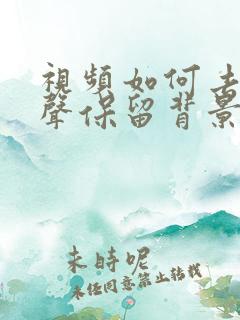 視頻如何去
聲保留背景
未時呢
未經同意禁止轉載